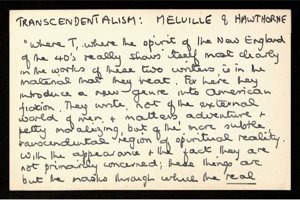 TRANSCENDENTALISM: MELVILLE & HAWTHORNE
"Where T, where the spirit of the New England
of the 40's really shows itself most clearly
in the works of these two writers is in the
material that they treat. For here they
introduce a new genre into American
fiction. They write, not of the external
world of men, & matters, adventure &
petty moralizing, but of the more subtle
transcendental region of spiritual reality
With the appearance & the fact they are
not primarily concerned; these things are
but the masks through which the real